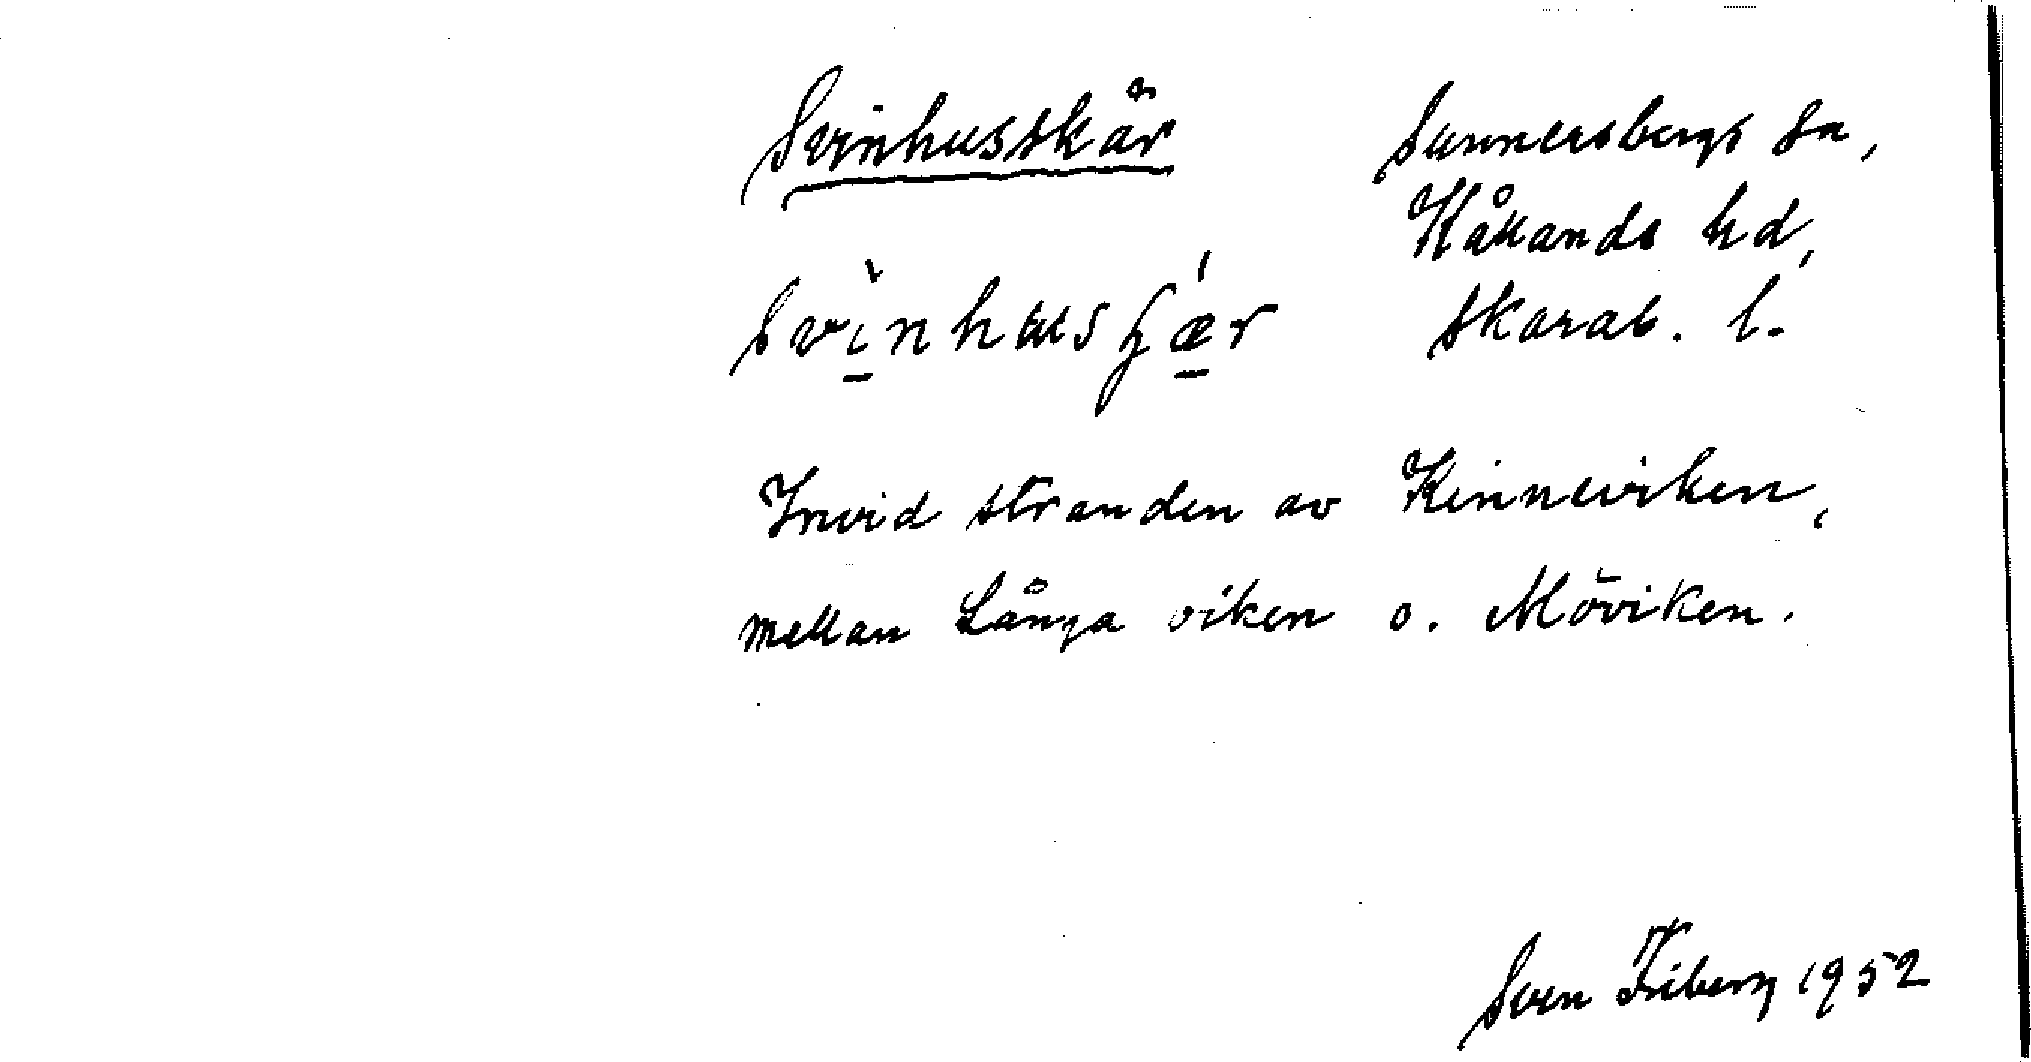 Svinhusskär
Sunnersbergs sn,
Kållands hd,
Skarab. l.
Invid stranden av Kinneviken,
mellan Långa viken o. Möviken.
Sven Friberg 1952